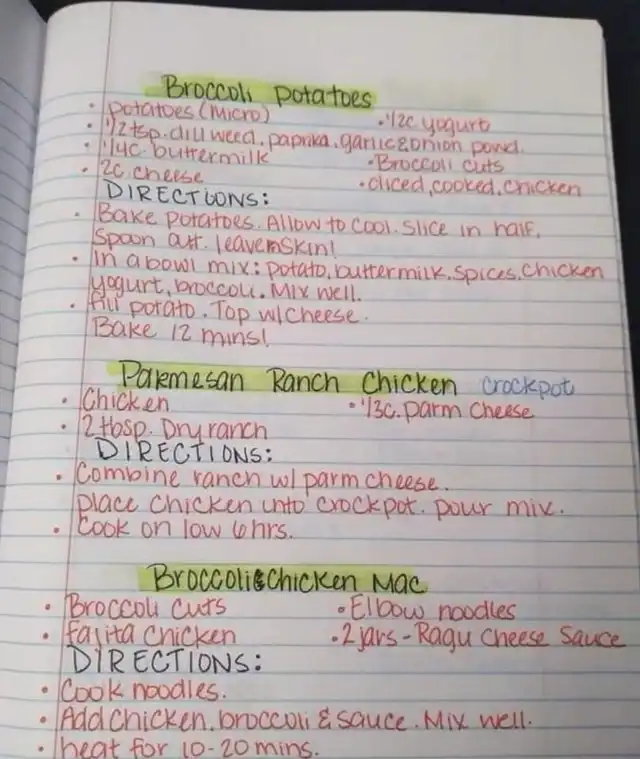 Broccoli potatoes
• potatoes (Micro) • 1/2c yogurt
• 1/2 tsp. dill weed, paprika, garlic & onion powd.
• 1/4c. buttermilk • Broccoli cuts
• 2c cheese • diced, cooked, chicken
DIRECTIONS:
• Bake potatoes. Allow to cool. Slice in half,
spoon out. leavem skin!
• In a bowl mix: potato, buttermilk, spices, chicken
yogurt, broccoli. Mix well.
• Fill potato. Top w/ cheese.
Bake 12 mins!
Parmesan Ranch Chicken crockpot
• Chicken • 1/3c. parm cheese
• 2 tbsp. Dry ranch
DIRECTIONS:
• Combine ranch w/ parm cheese.
place chicken into crockpot. pour mix.
• Cook on low 6 hrs.
Broccoli & Chicken Mac
• Broccoli cuts • Elbow noodles
• Fajita Chicken • 2 jars - Ragu Cheese Sauce
DIRECTIONS:
• Cook noodles.
• Add chicken, broccoli & sauce. Mix well.
• heat for 10-20 mins.